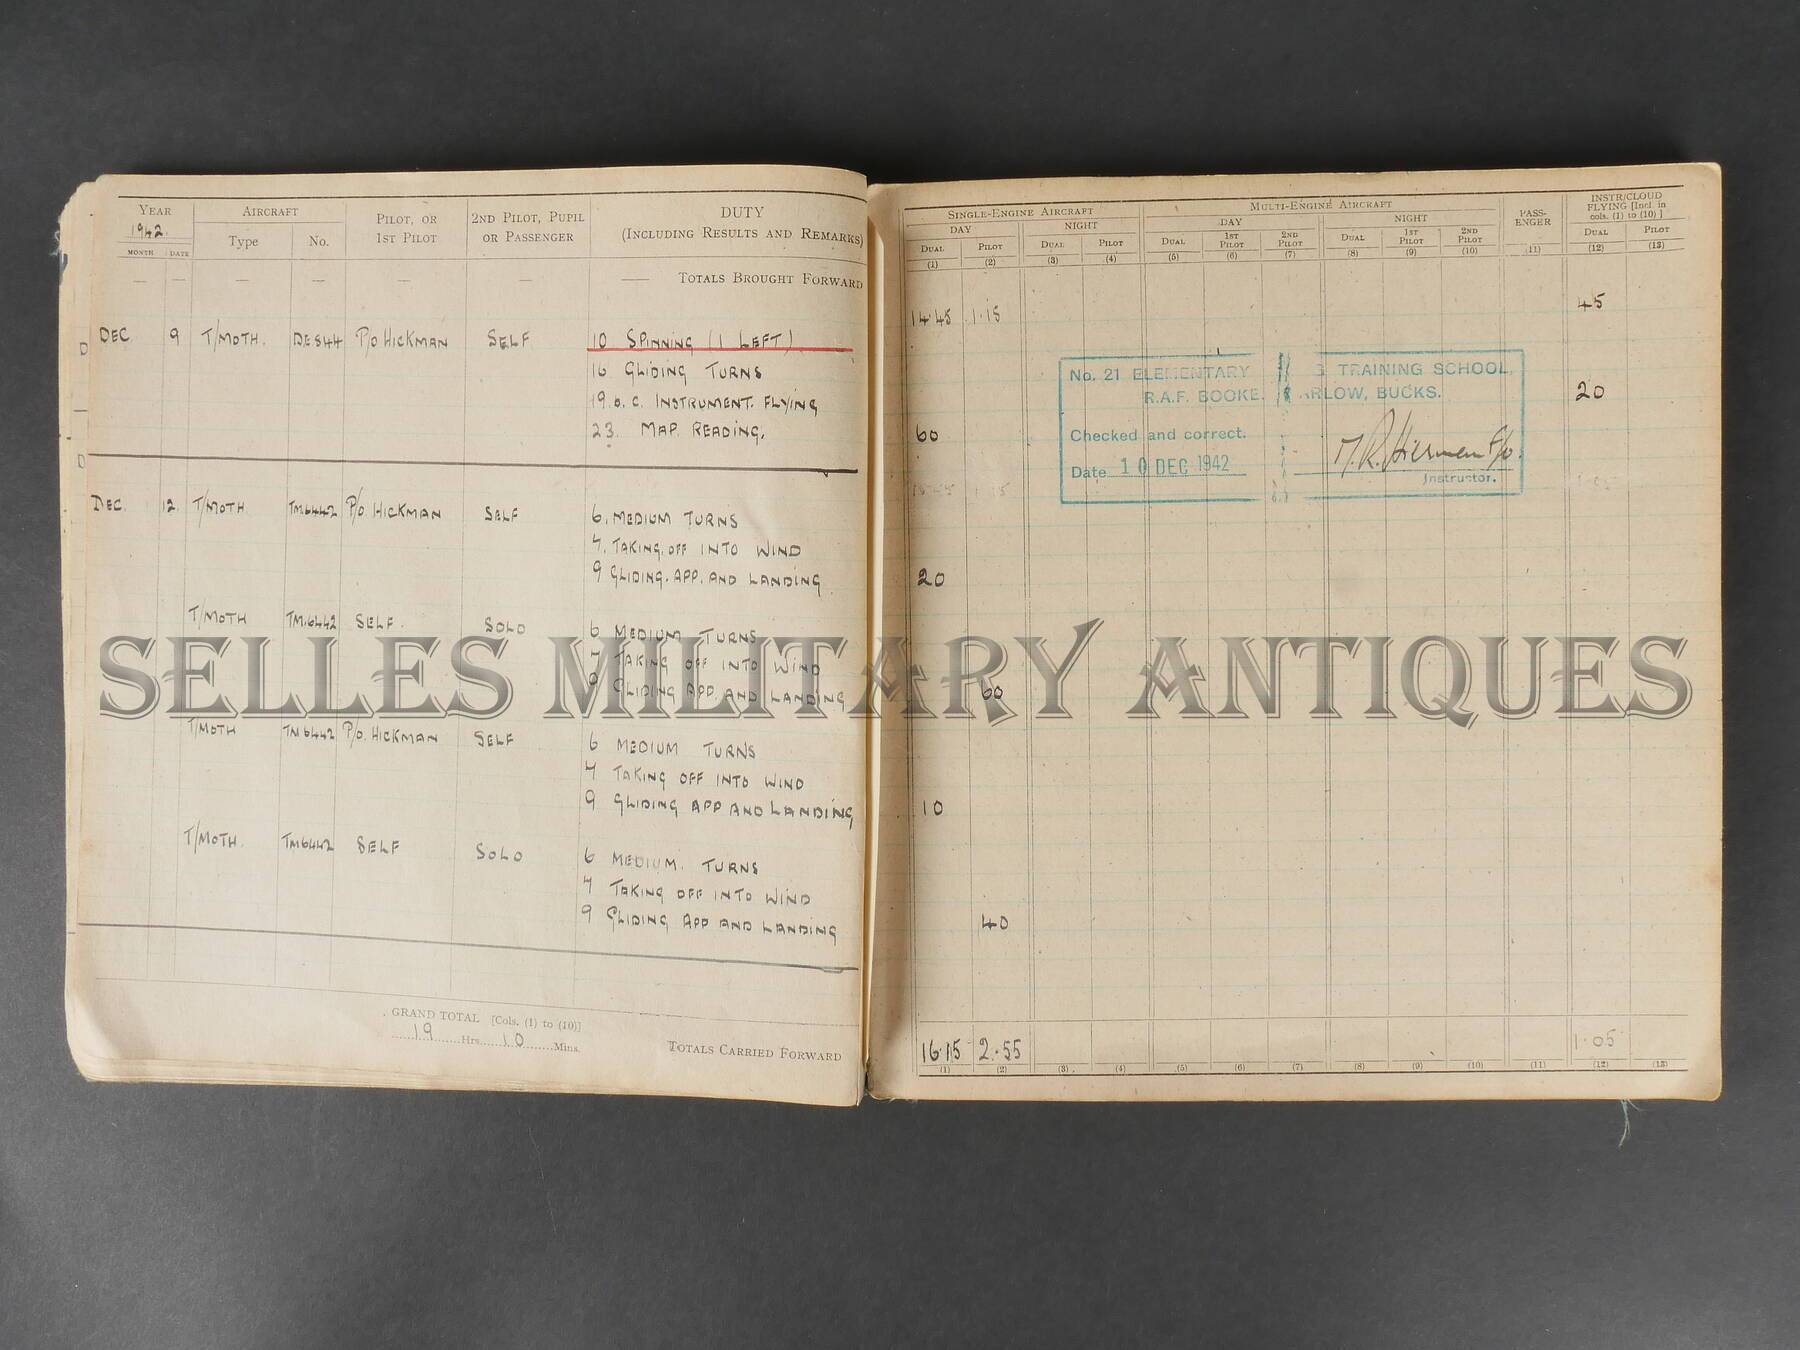 YEAR AIRCRAFT PILOT, OR 1ST PILOT 2ND PILOT, PUPIL OR PASSENGER DUTY (INCLUDING RESULTS AND REMARKS)
1942.
MONTH DATE Type No.
— — — — — — — TOTALS BROUGHT FORWARD
DEC 9 T/MOTH. DE844 P/O HICKMAN SELF 10 SPINNING (1 LEFT)
16 GLIDING TURNS
19. INSTRUMENT. FLYING
23. MAP. READING.
DEC. 12. T/MOTH 6442 P/O. HICKMAN SELF 6. MEDIUM TURNS
7. TAKING. OFF INTO WIND
9 GLIDING. APP. AND LANDING
T/MOTH 6442 SELF. SOLO 6 MEDIUM TURNS
7 TAKING OFF INTO WIND
9 GLIDING APP. AND LANDING
T/MOTH 6442 P/O. HICKMAN SELF 6 MEDIUM TURNS
7 TAKING OFF INTO WIND
9 GLIDING APP AND LANDING
T/MOTH. 6442 SELF SOLO 6 MEDIUM. TURNS
7 TAKING OFF INTO WIND
9 GLIDING APP AND LANDING
GRAND TOTAL [Cols. (1) to (10)]
19 Hrs. 10 Mins.
TOTALS CARRIED FORWARD
SINGLE-ENGINE AIRCRAFT MULTI-ENGINE AIRCRAFT PASS-ENGER INSTR/CLOUD FLYING [Incl. in cols. (1) to (10)]
DAY NIGHT DAY NIGHT
DUAL PILOT DUAL PILOT DUAL 1ST PILOT 2ND PILOT DUAL 1ST PILOT 2ND PILOT DUAL PILOT
(1) (2) (3) (4) (5) (6) (7) (8) (9) (10) (11) (12) (13)
14.45 1.15 45
No. 21 ELEMENTARY TRAINING SCHOOL,
R.A.F. BOOKE BUCKS.
60 20
Checked and correct.
Date 10 DEC 1942
Instructor.
20
60
10
40
16.15 2.55 1.05
(1) (2) (3) (4) (5) (6) (7) (8) (9) (10) (11) (12) (13)
SELLES MILITARY ANTIQUES